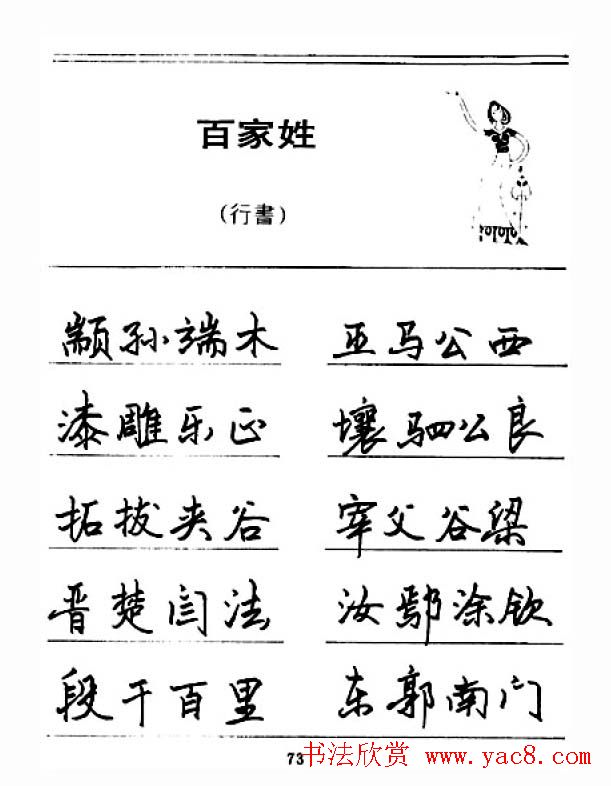 百家姓
(行書)
颛孙端木 巫马公西
漆雕乐正 壤驷公良
拓拔夹谷 宰父谷梁
晋楚闫法 汝鄢涂钦
段干百里 东郭南门
73 书法欣赏 www.yac8.com